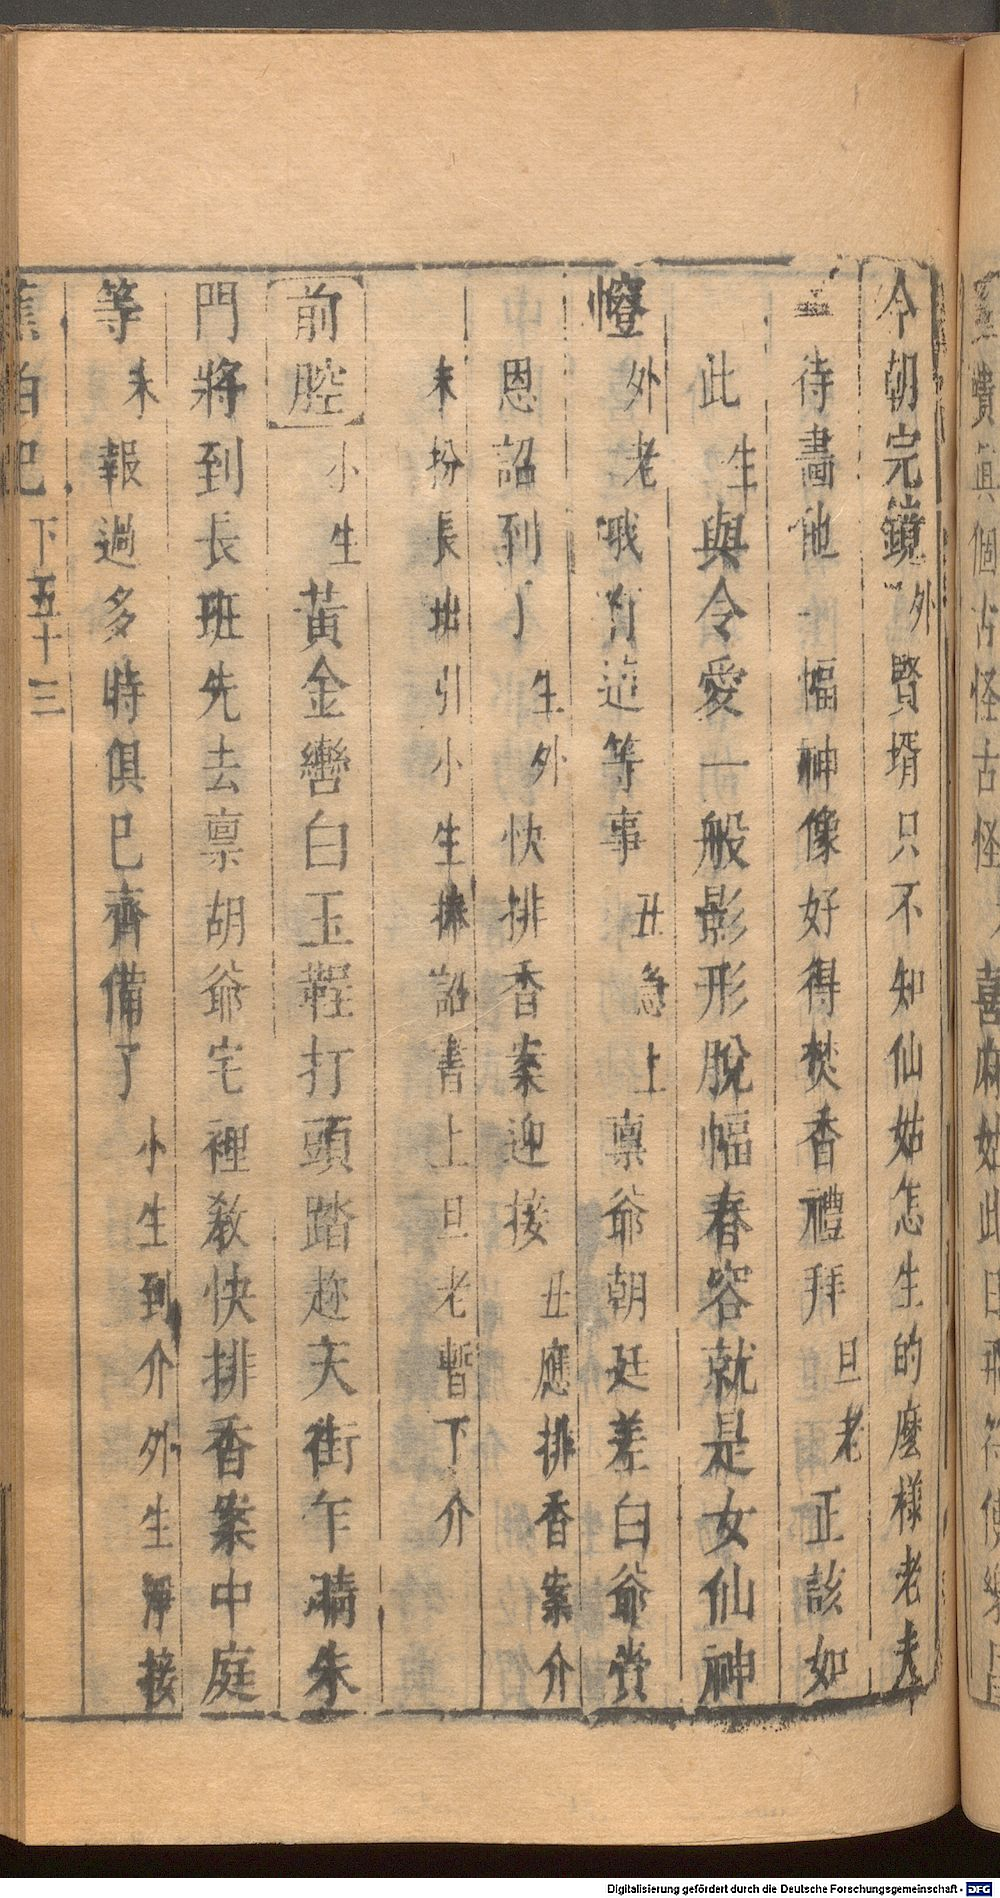 今朝完鏡外賢壻只不知仙姑怎生的麼樣老夫
待畫他一幅神像好得焚香禮拜旦老正該如
此生與令愛一般影形脫幅春容就是女仙神
幀外老哦有這等事丑急上禀爺朝廷差白爺賫
恩詔到了生外快排香案迎接丑應排香案介
末扮長班引小生捧詔書上旦老暫下介
前腔小生黃金轡白玉鞓打頭踏趂天街乍晴朱
門將到長班先去禀胡爺宅裡教快排香案中庭
等末報過多時俱已齊備了小生到介外生淨接
蕉帕記 下 五十三
Digitalisierung gefördert durch die Deutsche Forschungsgemeinschaft - DFG